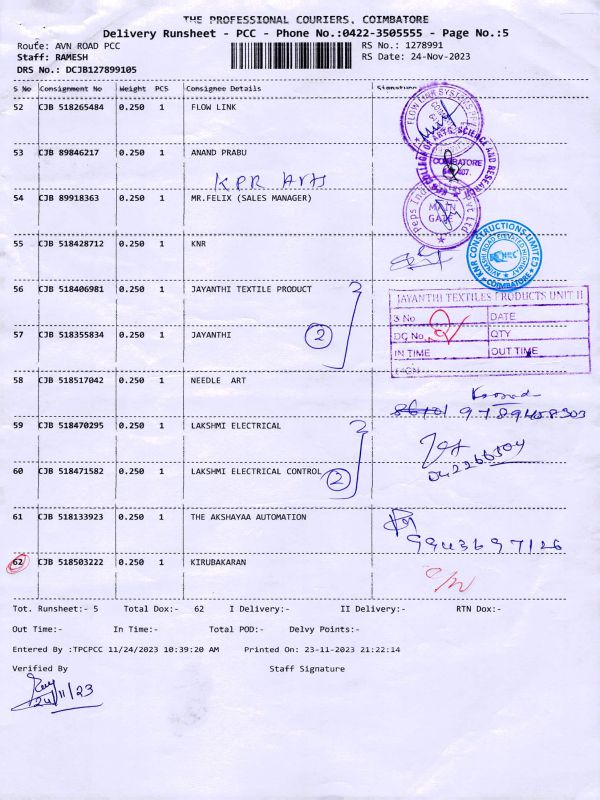 THE PROFESSIONAL COURIERS, COIMBATORE
Delivery Runsheet - PCC - Phone No.:0422-3505555 - Page No.:5
Route: AVN ROAD PCC RS No.: 1278991
Staff: RAMESH RS Date: 24-Nov-2023
DRS No.: DCJB127899105
S No Consignment No Weight PCS Consignee Details Signature
52 CJB 518265484 0.250 1 FLOW LINK
FLOW LINK SYSTEMS
53 CJB 89846217 0.250 1 ANAND PRABU
KPR COLLEGE OF ARTS, SCIENCE AND RESEARCH
COIMBATORE
641 407.
KPR Arts
54 CJB 89918363 0.250 1 MR.FELIX (SALES MANAGER)
Peps Ind Pvt Ltd
MAIN GATE
55 CJB 518428712 0.250 1 KNR
KNR CONSTRUCTIONS LIMITED
AVINASHI ROAD ELEVATED HIGHWAY
COIMBATORE
56 CJB 518406981 0.250 1 JAYANTHI TEXTILE PRODUCT
JAYANTHI TEXTILES PRODUCTS UNIT II
S No DATE
57 CJB 518355834 0.250 1 JAYANTHI 2
DC No QTY
IN TIME OUT TIME
SIGN
58 CJB 518517042 0.250 1 NEEDLE ART
9789458303
59 CJB 518470295 0.250 1 LAKSHMI ELECTRICAL
60 CJB 518471582 0.250 1 LAKSHMI ELECTRICAL CONTROL 2
61 CJB 518133923 0.250 1 THE AKSHAYAA AUTOMATION
9943697126
62 CJB 518503222 0.250 1 KIRUBAKARAN
Tot. Runsheet:- 5 Total Dox:- 62 I Delivery:- II Delivery:- RTN Dox:-
Out Time:- In Time:- Total POD:- Delvy Points:-
Entered By :TPCPCC 11/24/2023 10:39:20 AM Printed On: 23-11-2023 21:22:14
Verified By Staff Signature
24/11/23